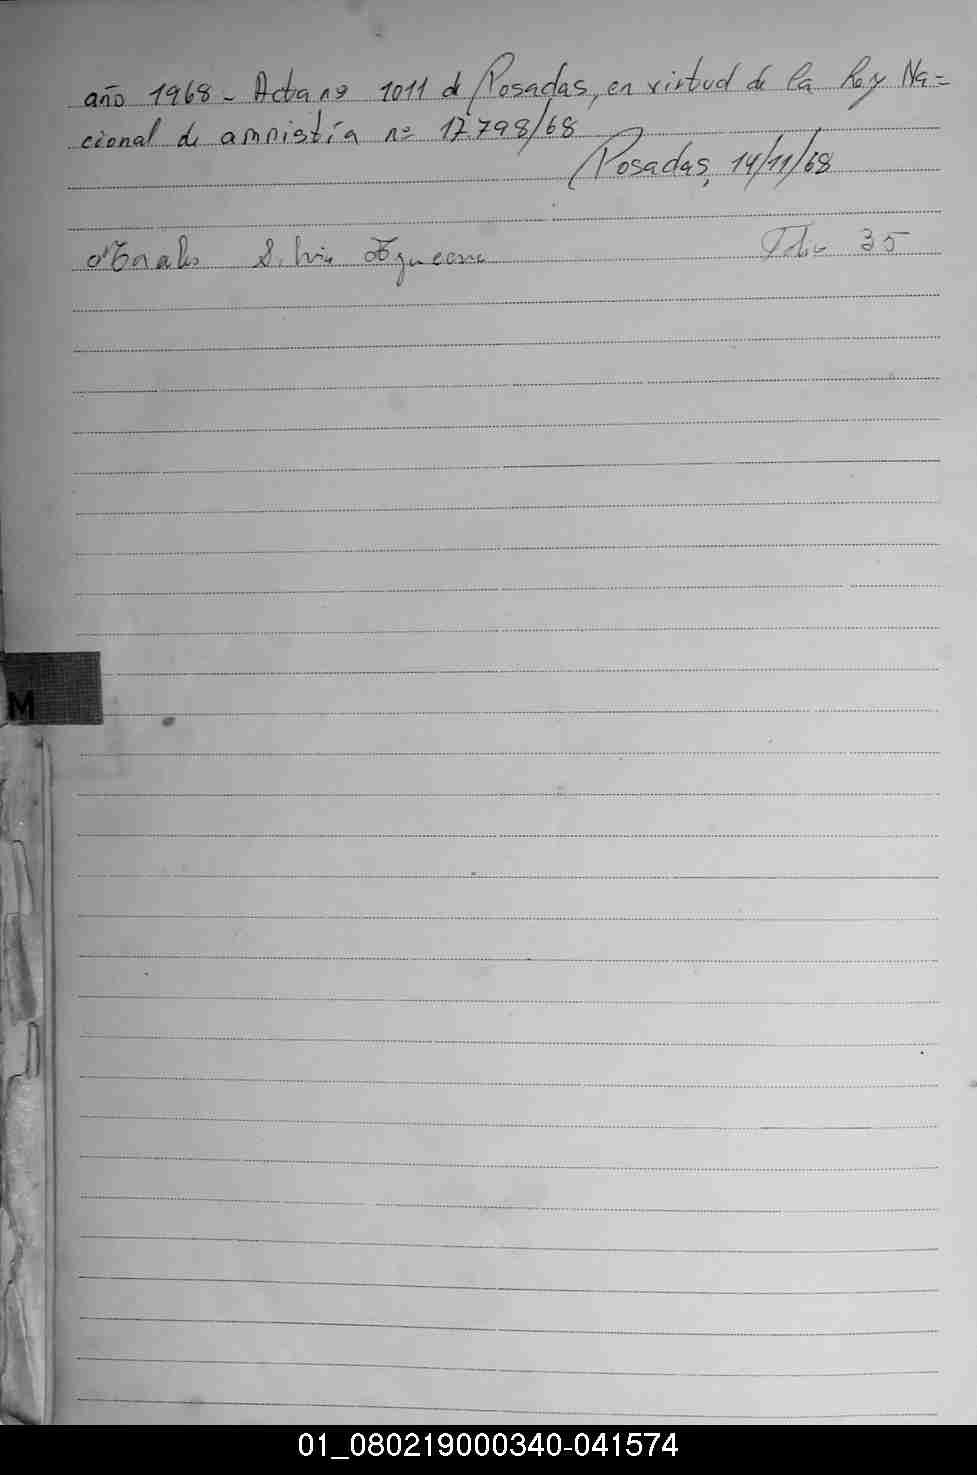 año 1968 - Acta nº 1011 de Posadas, en virtud de la Ley Na=
cional de amnistía nº 17.798/68
Posadas, 14/11/68
Silvio Folio 35
M
01_080219000340-041574